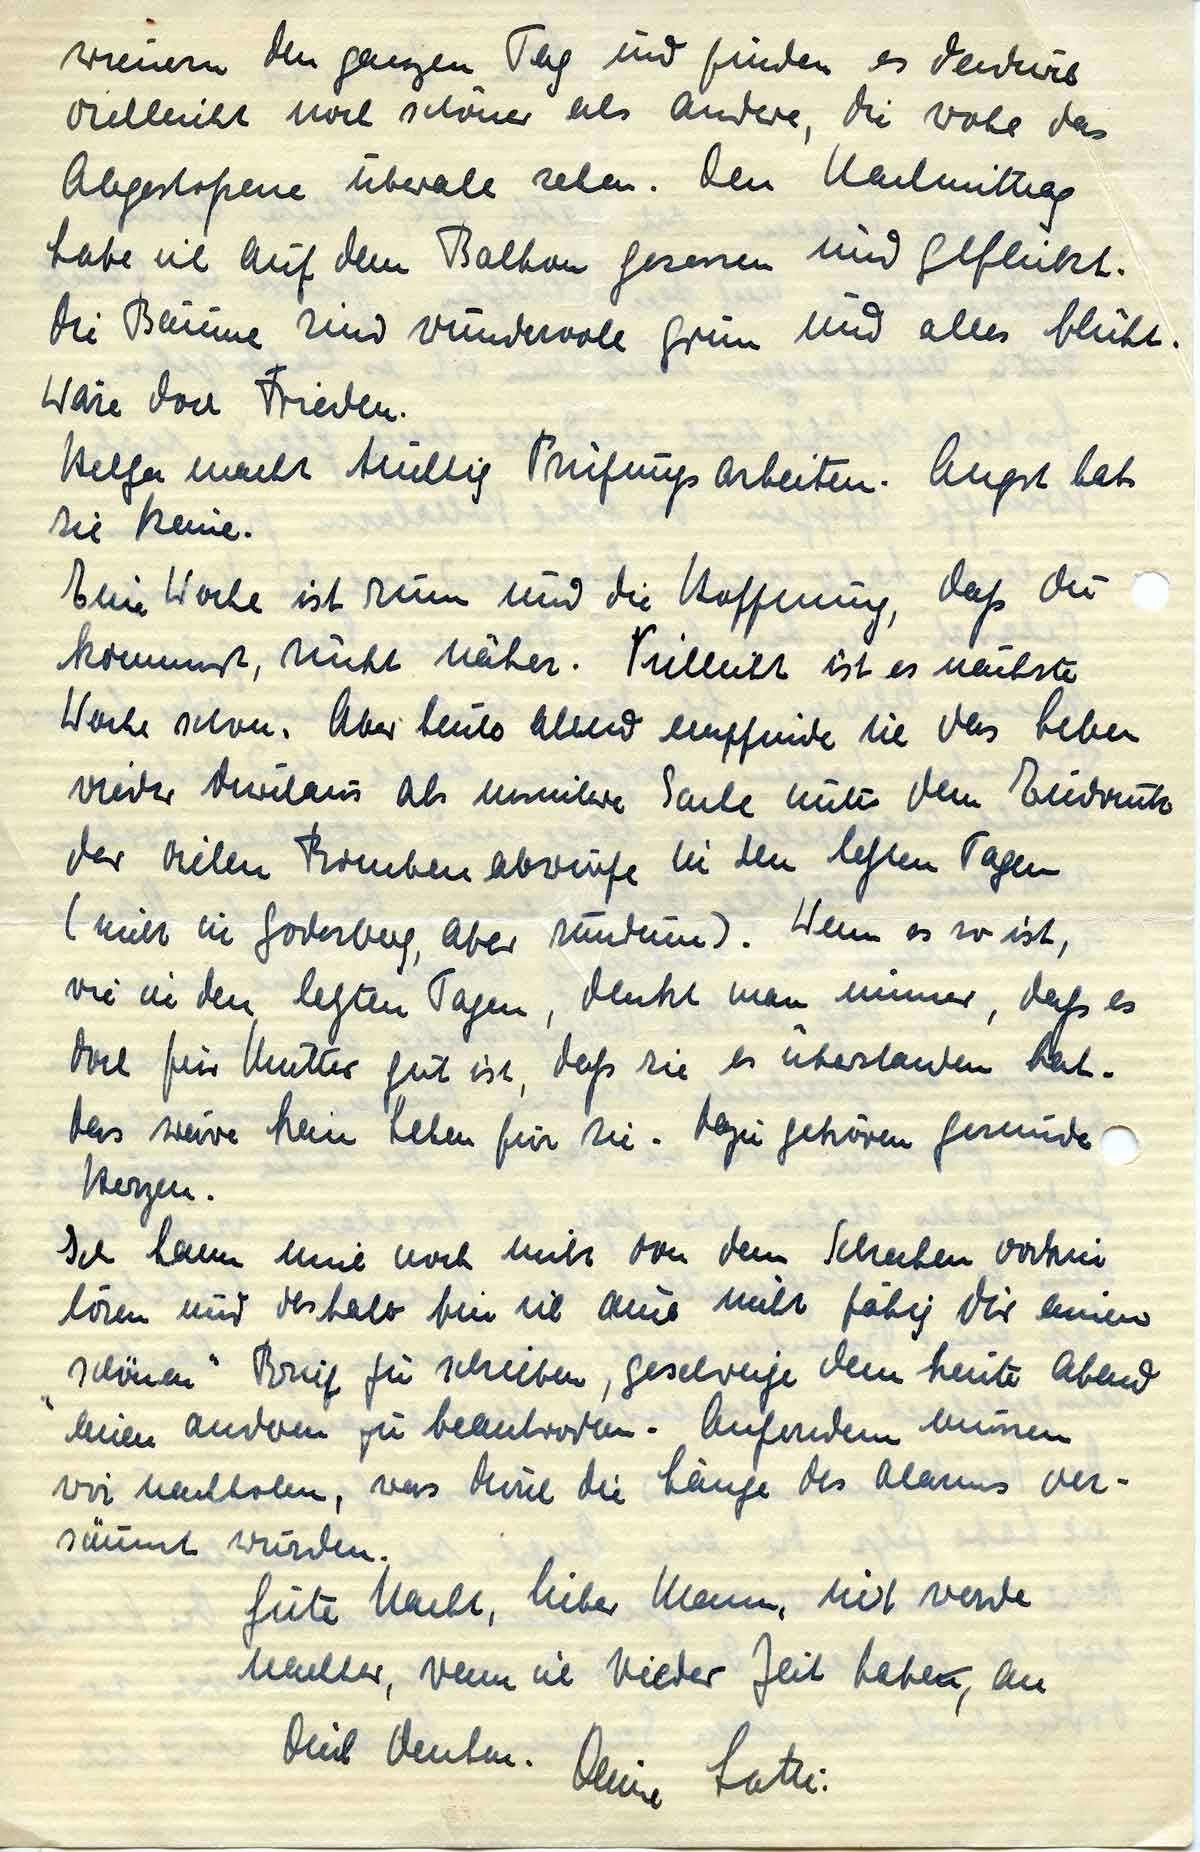 wienern den ganzen Tag und finden es dadurch
vielleicht noch schöner als andere, die wohl das
Abgestopene überall sehen. Den Nachmittag
habe ich auf dem Balkon gesessen und geflickt.
Die Bäume sind wundervoll grün und alles blüht.
Wäre doch Frieden.
Helga macht tüchtig Prüfungsarbeiten. Angst hat
sie keine.
Eine Woche ist rum und die Hoffnung, daß Du
kommst, rückt näher. Vielleicht ist es nächste
Woche schon. Aber heute Abend empfinde ich das Leben
wieder durchaus als unsichere Sache unter dem Eindruck
der vielen Bombenabwürfe in den letzten Tagen
(nicht in Godesberg, aber rundum). Wenn es so ist,
wie in den letzten Tagen, denkt man immer, daß es
doch für Mutter gut ist, daß sie es überstanden hat.
Das wäre kein Leben für sie. Dazu gehören gesunde
Herzen.
Ich kann mich noch nicht von dem Schrecken vorhin
lösen und deshalb bin ich auch nicht fähig Dir einen
"schönen" Brief zu schreiben, geschweige denn heute Abend
einen anderen zu beantworten. Außerdem müssen
wir nachholen, was durch die Länge des Alarms ver-
säumt wurden.
Gute Nacht, lieber Mann, ich werde
nachher, wenn ich wieder Zeit habe, an
Dich denken. Deine Lotti.